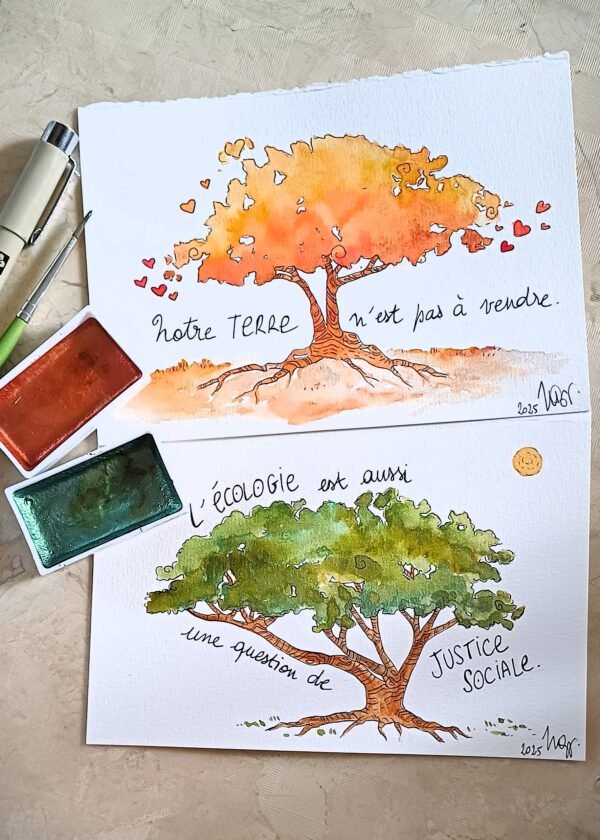 notre TERRE n'est pas à vendre.
2025
L'ÉCOLOGIE est aussi
une question de
JUSTICE
SOCIALE.
2025